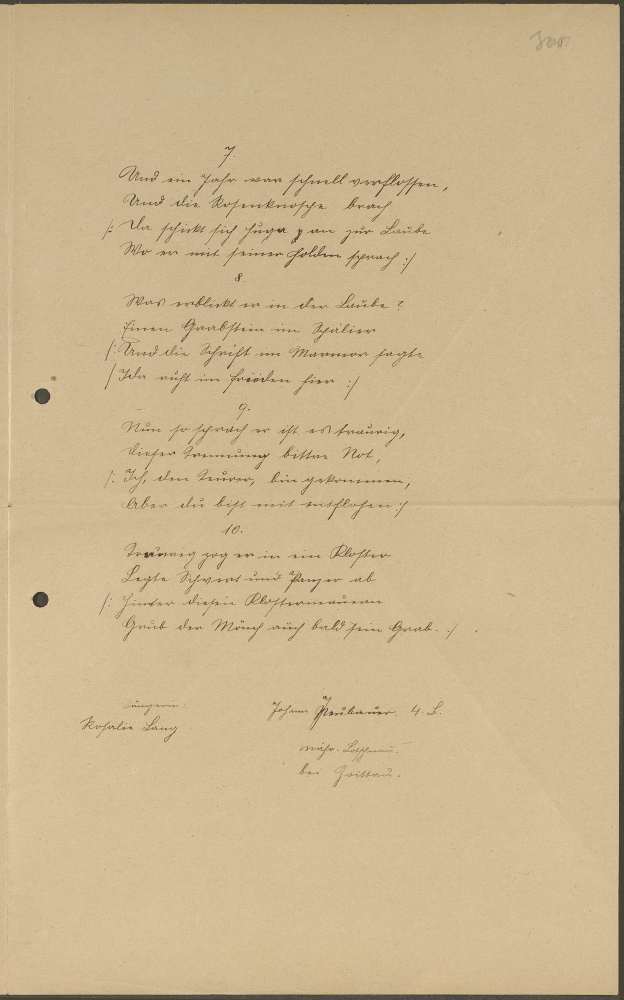 7.
Und ein Jahr war schnell verflossen,
Und die Rosenknospe brach
/: Da schickt sich Hugo an zur Laube
Wo er mit seiner Holden sprach :/
8.
Was erblickt er in der Laube?
Einen Grabstein im Spalier
/: Und die Schrift im Marmor sagte
/ Ida ruht im Frieden hier :/
9.
Nun so sprach er ist es traurig,
Dieser Trennung bittre Not,
/: Ich, dein Teurer, bin gekommen,
Aber du bist mit entflohen :/
10.
Traurig zog er in ein Kloster
Legte Schwert und Panzer ab
/: Hinter diesen Klostermauern
Grub der Mönch auch bald sein Grab. :/
Sängerin:
Rosalie Lang
Johann Neubauer 4. L.
mähr. Lotschnau.
bei Zwittau.